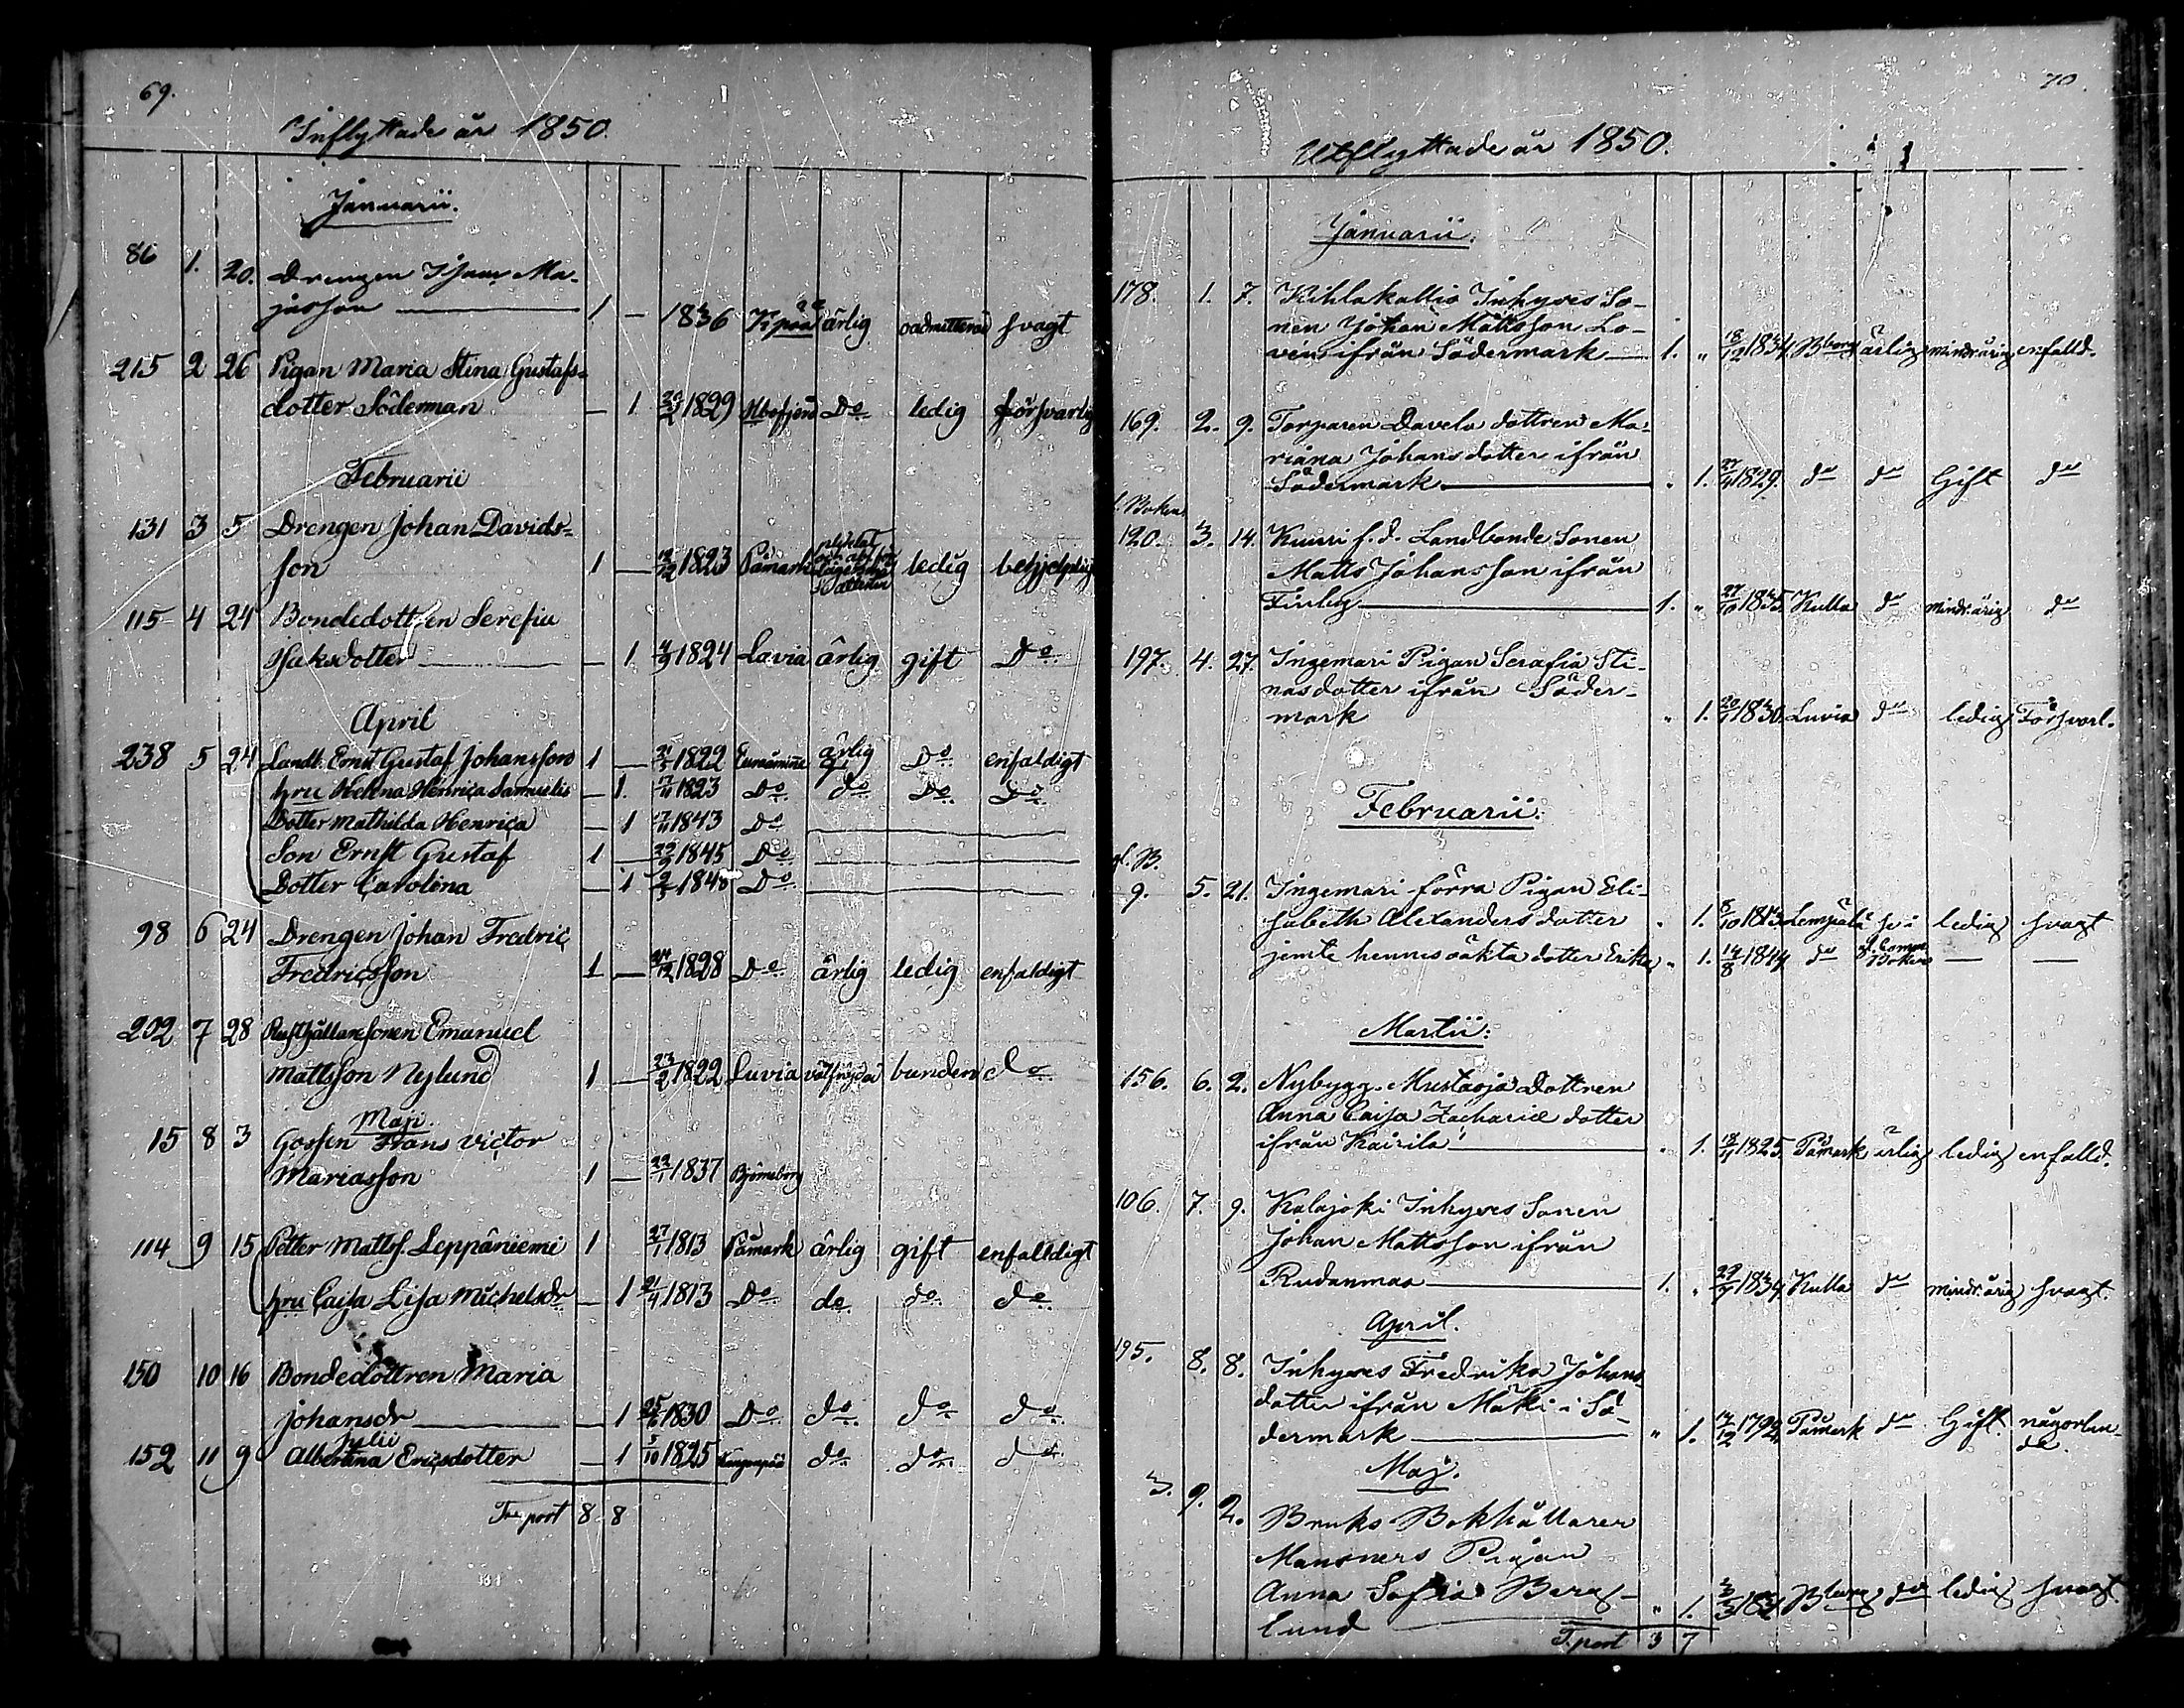 69.
Inflyttade år 1850.
Januarii.
86 1. 20. Drengen Isaac Ma-
jasson 1 — 1836 ärlig oadmitterad svagt
215 2 26 Pigan Maria Stina Gustafs-
dotter Söderman — 1 1829 Do ledig försvarlig
Februarii
131 3 5 Drengen Johan Davids-
son 1 — 1823 Påmark ledig behjelplig
115 4 24 Bondedottren Serefia
Isaksdotter — 1. 4/9 1824 Lavia ärlig gift Do
April
238 5 24 Landb. Ernst Gustaf Johansson 1 — 1822 Euraåminne ärlig Do enfaldigt
hru Helena Henrica Samuelis — 1. 17/11 1823 Do do Do Do
Dotter Mathilda Henrica — 1 17/11 1843 Do
Son Ernst Gustaf 1 — 29/9 1845 Do
Dotter Carolina — 1 2/3 1848 Do
98 6 24 Drengen Johan Fredric
Fredricsson 1 — 24/12 1828 Do ärlig ledig enfaldigt
202 7 28 Rusthållaresonen Emanuel
Mattsson Nylund 1 — 23/2 1822 Luvia välfrejdad bunden do
Maji
15 8 3 Gossen Frans Victor
Mariasson 1 — 22/1 1837 Björneborg
114 9 15 Petter Mattss. Leppäniemi 1 27/1 1813 Påmark ärlig gift enfalldigt
hru Caisa Lisa Michelsdr — 1 21/4 1813 Do do do do
150 10 16 Bondedottren Maria
Johansdr — 1 25/6 1830 Do do do do
Julii
152 11 9 Albertina Ericsdotter — 1 5/10 1825 Kangenpää do do do
Trsport 8 8
70.
Utflyttade år 1850.
Januarii.
178. 1. 7. Kihlakallio Inhyses So-
nen Johan Mattsson Lo-
vén ifrån Södermark 1. " 18/12 1834 Bborg ärlig mindr.årig enfalld.
169. 2. 9. Torparen Davela dottren Ma-
riana Johansdotter ifrån
Södermark " 1. 27/4 1829. do do Gift do
f. Boken
120. 3. 14. Kuusi f. d. Landbonde Sonen
Matts Johansson ifrån
Finby 1. " 27/10 1835. Kulla do mindr.årig do
197. 4. 27. Ingemari Pigan Serafia Sti-
nasdotter ifrån Söder-
mark " 1. 20/1 1830. Luvia do ledig Försvarl.
Februarii.
gl. B.
9. 5. 21. Ingemari förra Pigan Eli-
sabeth Alexandersdotter " 1. 8/10 1813. Lempälä se i ledig svagt
jemte hennes oäkta dotter Erika " 1. 14/8 1844 do gl. Comm. Boken — —
Martii.
156. 6. 2. Nybygg. Mustaoja Dottren
Anna Caisa Zachariæ dotter
ifrån Kairila " 1. 18/4 1825. Påmark ärlig ledig enfalld.
106. 7. 9. Kalajoki Inhyses Sonen
Johan Mattsson ifrån
Rudanmaa 1. " 29/7 1834 Kulla do mindr.årig svagt.
April.
195. 8. 8. Inhyses Fredrika Johans-
dotter ifrån Mäki i Sö-
dermark " 1. 17/12 1792. Påmark do Gift. någorlun-
de.
Maj.
3. 9. 2. Bruks Bokhållaren
Mansners Pigan
Anna Sofia Berg-
lund " 1. Bborg do ledig svagt
T.port 3 7